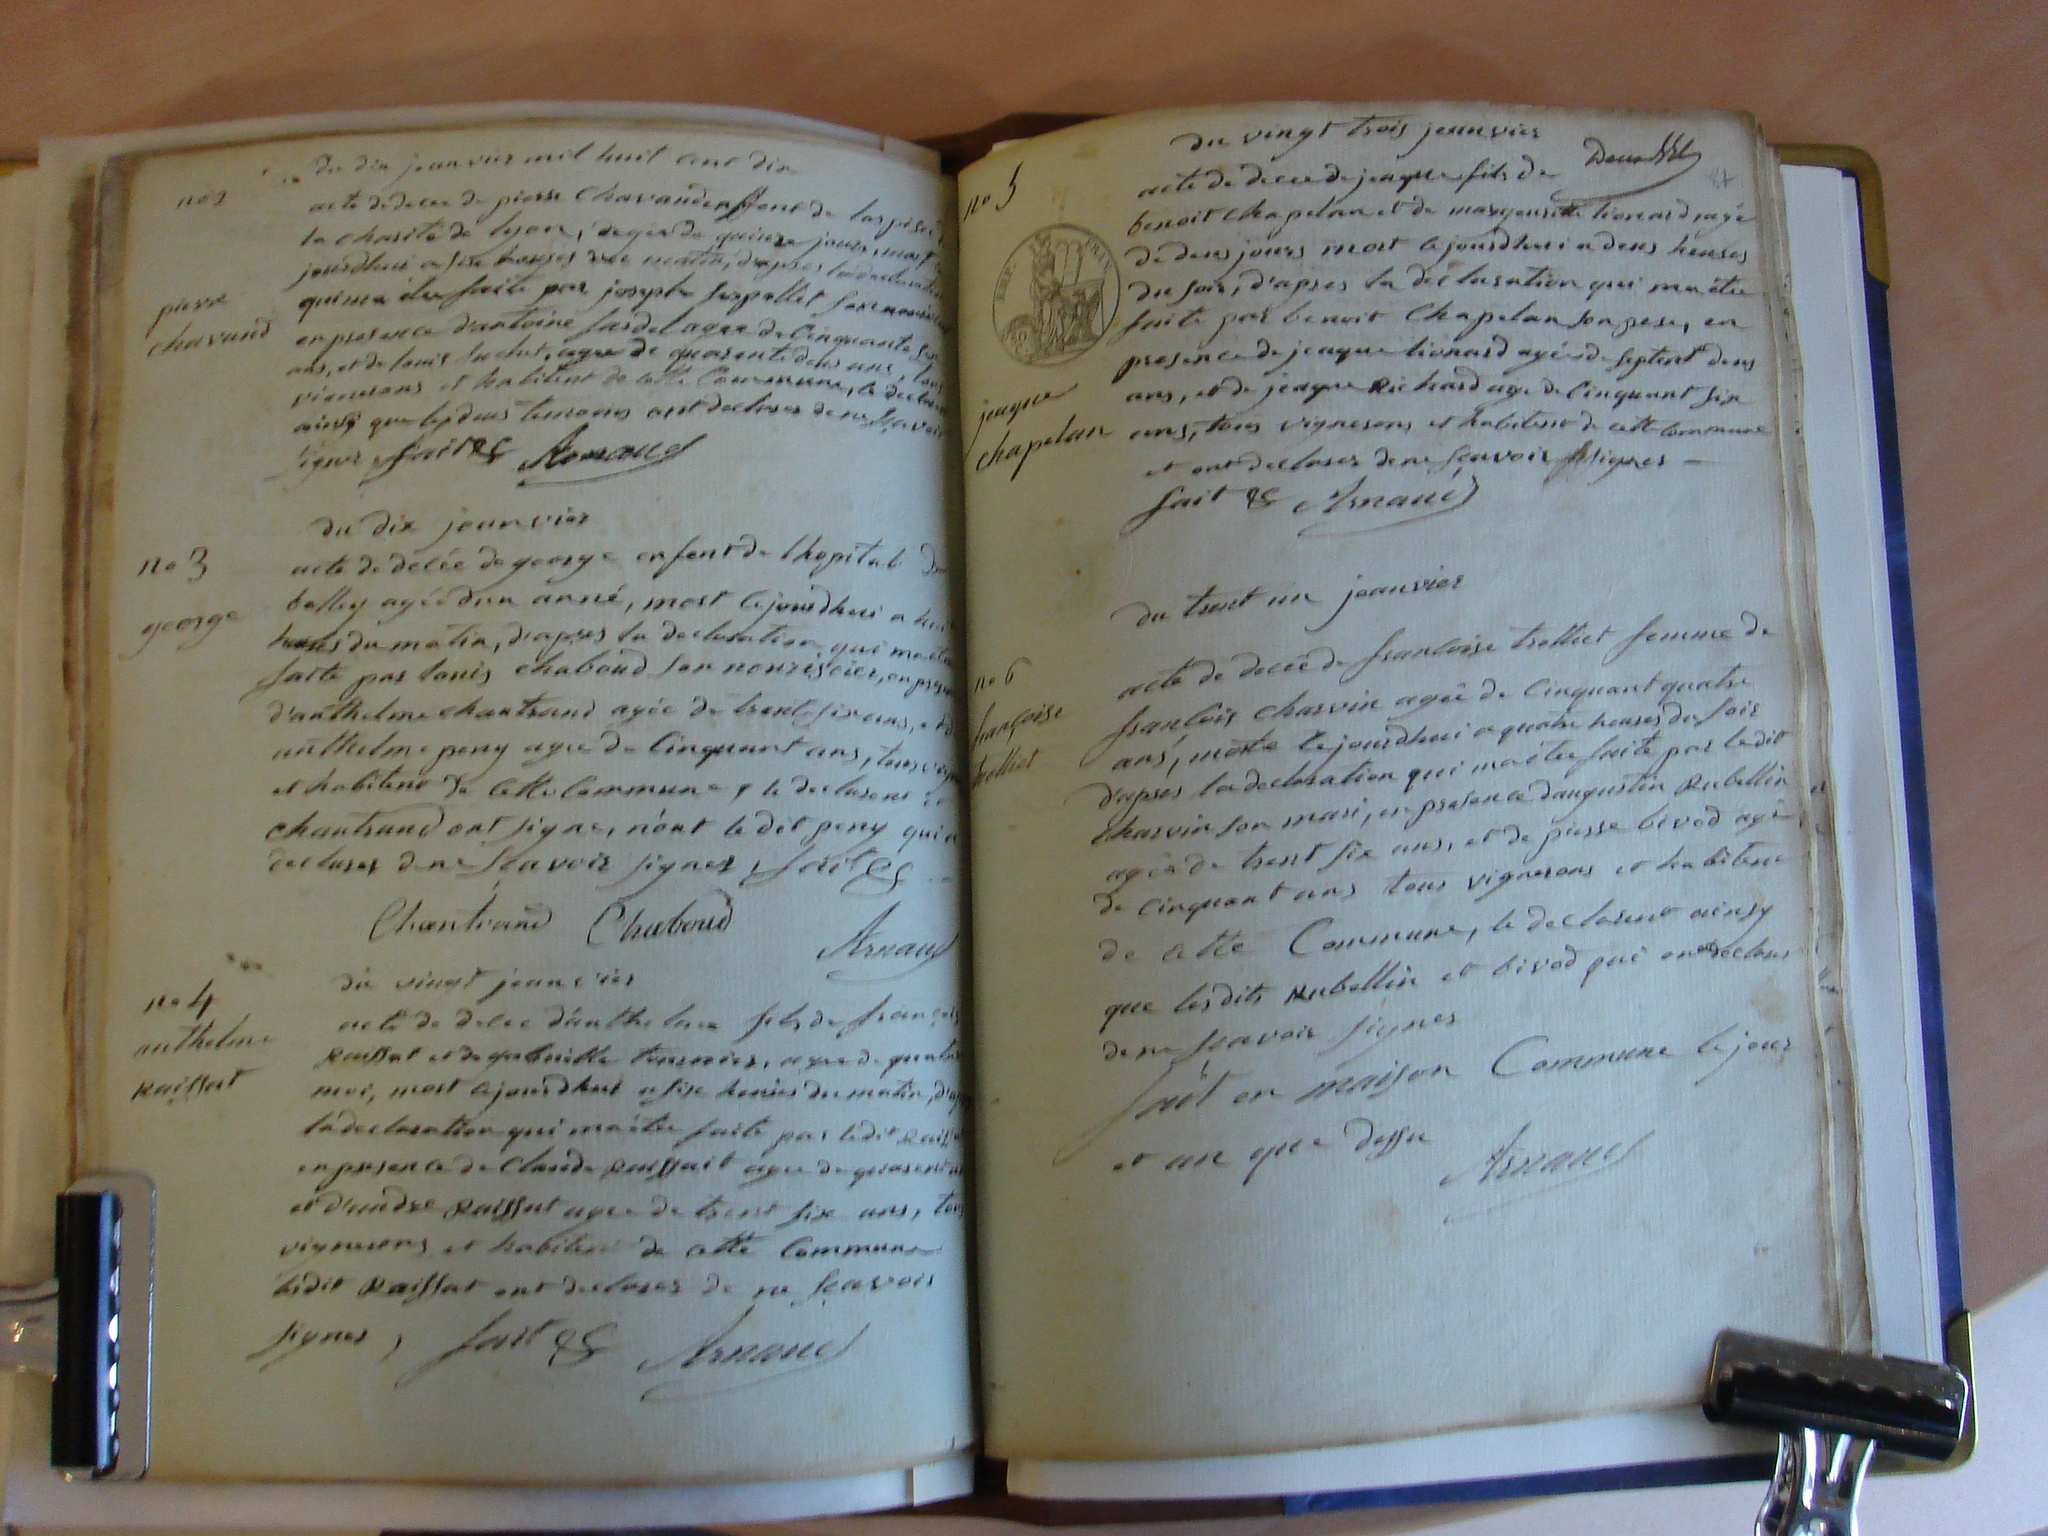 no 2
du dix jeanvier mil huit cent dix
acte de decee de pierre chavand enffent de
la charité de lyon, agee de quinze jours, mort
jourdhui a six heures du matin, d'apres la declaration
qui ma étee faite par joseph
en presence d'antoine agee de cinquante
ans, et de louis agee de quarente deus ans, tous
vignerons et habitent de cette Commune, le declarent
ainsi que les deus temoins ont declarer de ne scavoir
signer fait &c Arnaud
pierre
chavand
no 3
george
du dix jeanvier
acte de decée de george enfent de lhopital de
belley agée dun anné, mort cejourdhui a huit
heures du matin, d'apres la declaration qui ma étee
faite par louis chaboud son nouriscier, en presence
d'anthelme chantrand agée de trente six ans, et de
anthelme peny agee de cinquant ans, tous
et habitent de cette Commune, le declarent et
chantrand ont signe, n'ont le dit peny qui a
declarer de ne scavoir signer, fait &c
Chantrand Chaboud
Arnaud
no 4
anthelme
Raissat
du vingt jeanvier
acte de decee d'anthelme fils de françois
Raissat et de gabrielle tournier, agee de quatre
moi, mort cejourdhui a six heures du matin, d'apres
la declaration qui ma étee faite par ledit Raissat
en presence de Claude Raissait agee de quarent
et d'andre Raissat agee de trent six ans, tous
vignerons et habitent de cette Commune
ledit Raissat ont declarer de ne scavoir
signer, fait &c Arnaud
no 5
du vingt trois jeanvier
acte de decee de jeaque fils de
benoit Chapelan et de marguerite lionard agé
de deus jours mort cejourdhui a deus heures
du soir, d'apres la declaration qui ma étee
faite par benoit Chapelan son pere, en
presence de jeaque lionard agée de septent deus
ans, et de jeaque Richard age de cinquant six
ans, tous vignerons et habitent de cette Commune
et ont declarer de ne scavoir signer
fait &c Arnaud
jeaque
chapelan
du trent un jeanvier
no 6
françoise
trolliet
acte de decée de françoise trolliet femme de
françois charvin agée de cinquant quatre
ans, morte cejourdhui a quatre heures du soir
d'apres la declaration qui ma étee faite par ledit
charvin son mari, en presence daugustin Rubellin
agée de trent six ans, et de pierre bivod agé
de cinquant ans tous vignerons et habitent
de cette Commune, le declarent ainsy
que lesdits Rubellin et bivod qui ont declare
de ne scavoir signer
fait en maison Commune le jour
et an que dessu
Arnaud